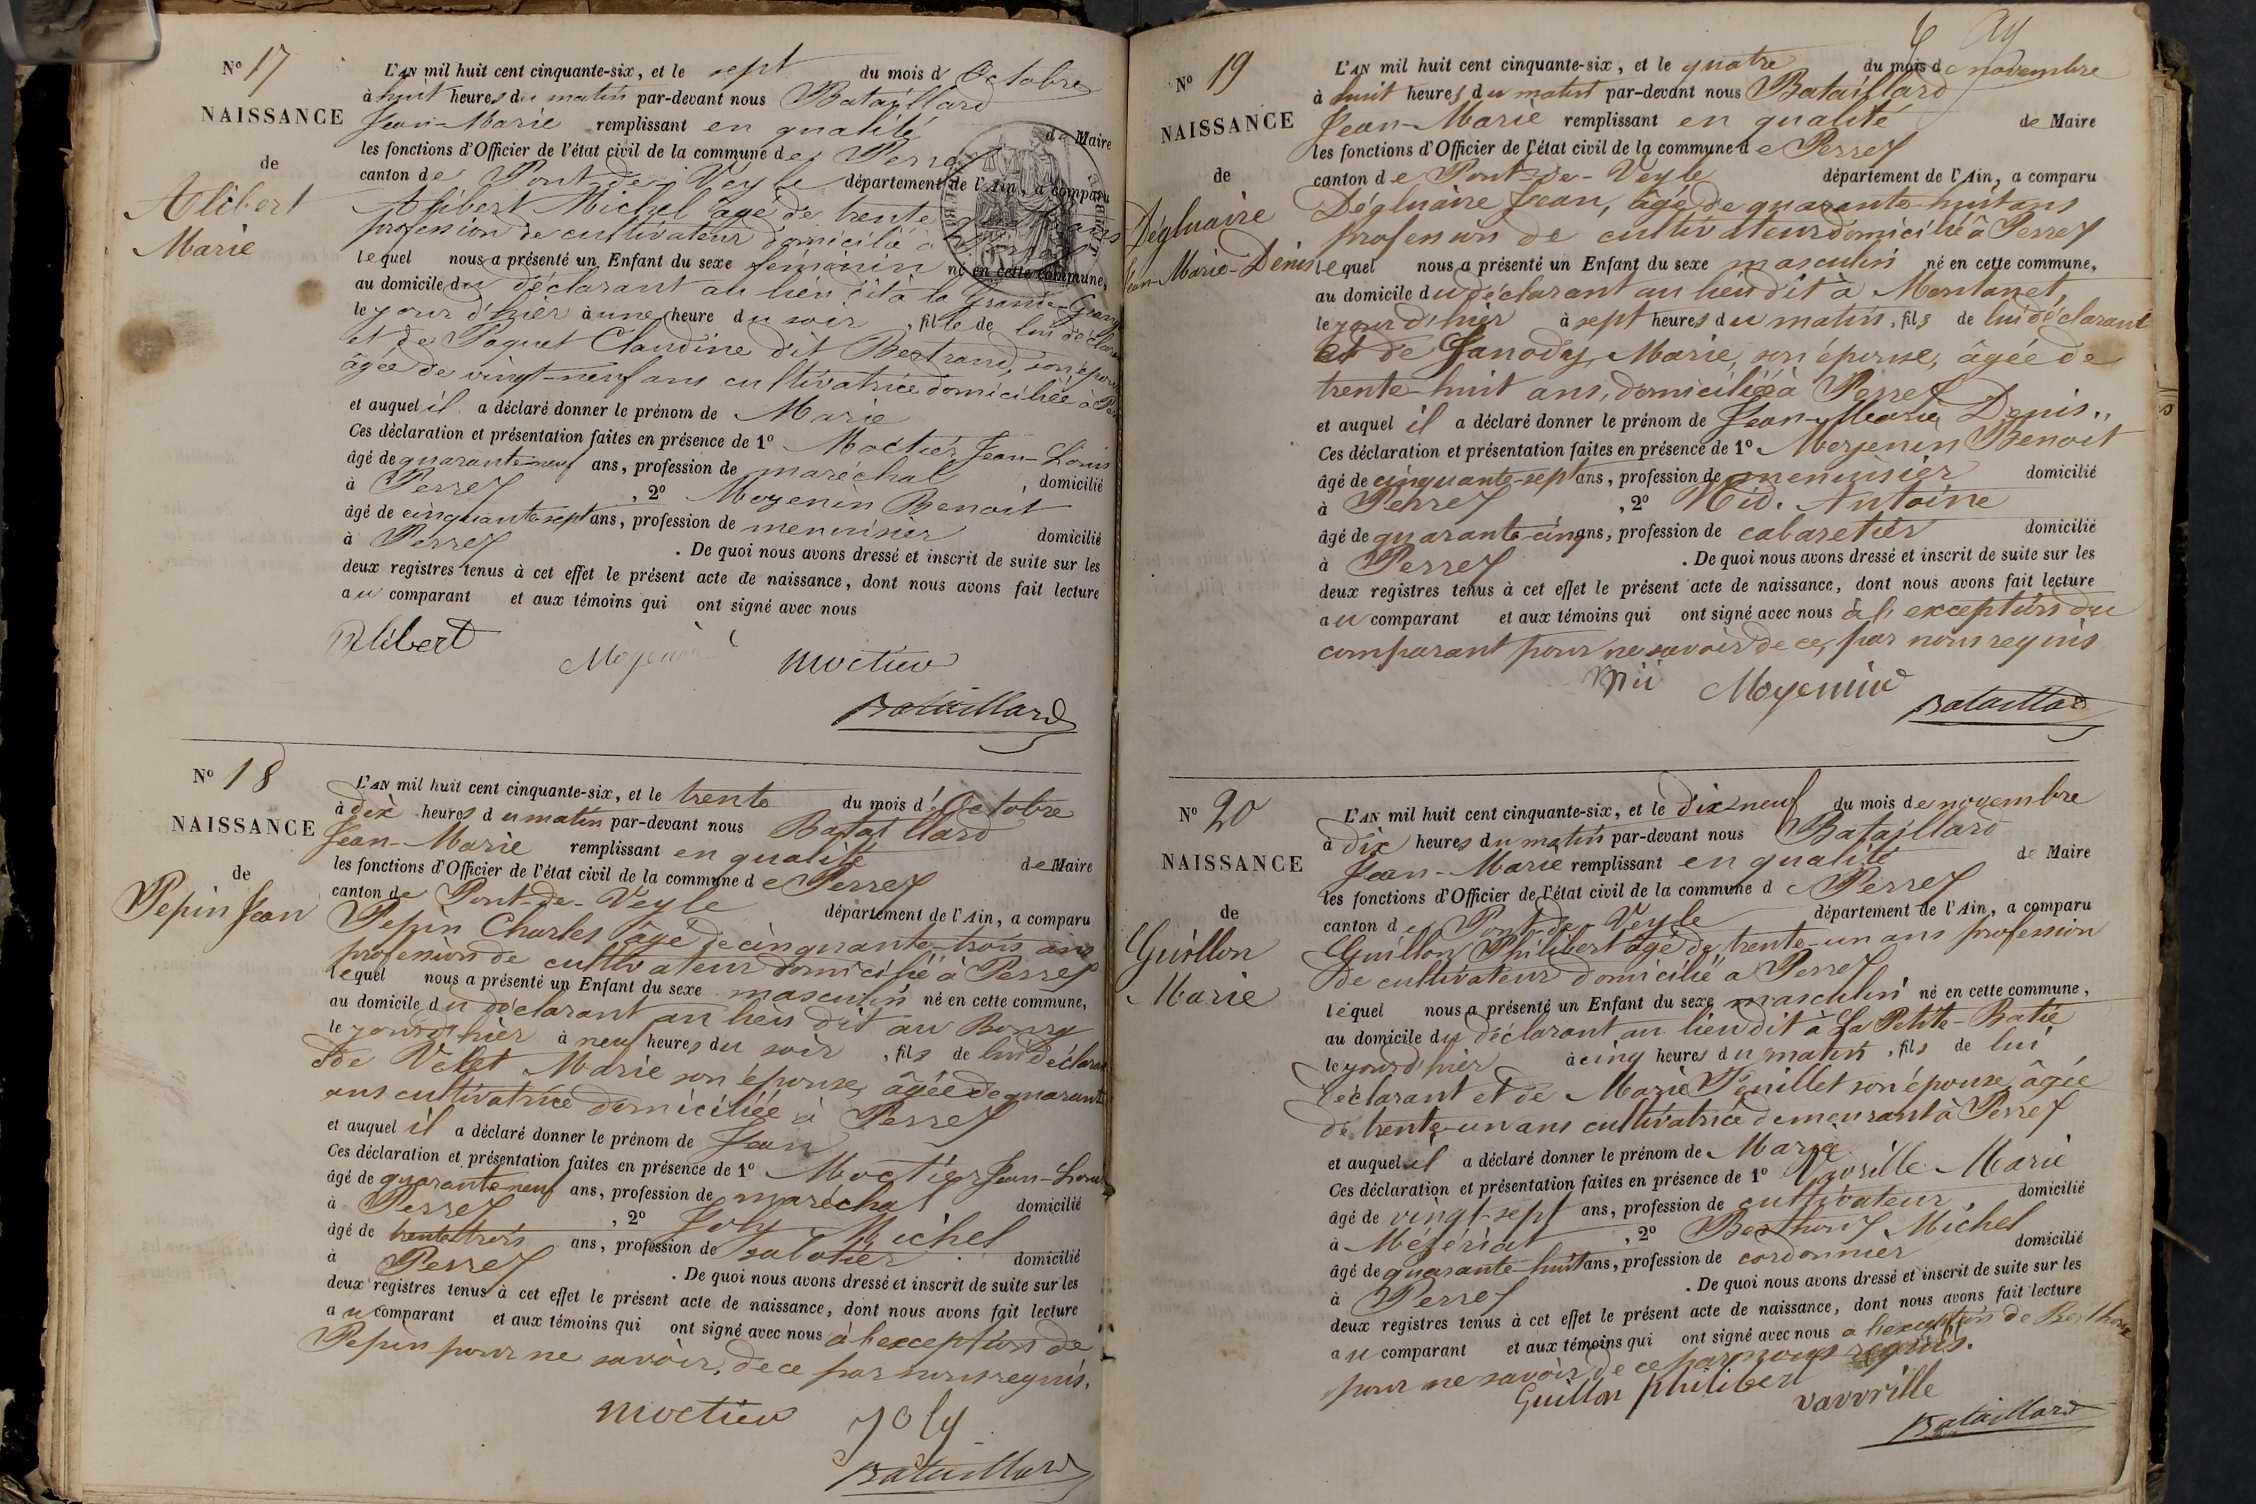 Nº 17
NAISSANCE
de
Alibert
Marie
L'AN mil huit cent cinquante-six, et le sept du mois d'Octobre
à huit heures du matin par-devant nous Bataillard
Jean-Marie remplissant en qualité de Maire
les fonctions d'Officier de l'état civil de la commune de Perrex
canton de Pont-de-Veyle département de l'Ain, a comparu
Alibert Michel âgé de trente ans
profession de cultivateur domicilié à
lequel nous a présenté un Enfant du sexe féminin né en cette commune,
au domicile du déclarant au lieu dit à la Grande-Grange
le jour d'hier à une heure du soir, fille de lui déclarant
et de Paquet Claudine dit Bertrand, son épouse
âgée de vingt-neuf ans cultivatrice domiciliée à
et auquel il a déclaré donner le prénom de Marie
Ces déclaration et présentation faites en présence de 1º Moctier Jean-Louis
âgé de quarante-neuf ans, profession de maréchal, domicilié
à Perrex, 2º Moyenin Benoit
âgé de cinquante-sept ans, profession de menuisier domicilié
à Perrex. De quoi nous avons dressé et inscrit de suite sur les
deux registres tenus à cet effet le présent acte de naissance, dont nous avons fait lecture
au comparant et aux témoins qui ont signé avec nous
Alibert
Moyenin moctier
Bataillard
Nº 18
NAISSANCE
de
Pepin Jean
L'AN mil huit cent cinquante-six, et le trente du mois d'Octobre
à dix heures du matin par-devant nous Bataillard
Jean-Marie remplissant en qualité de Maire
les fonctions d'Officier de l'état civil de la commune de Perrex
canton de Pont-de-Veyle département de l'Ain, a comparu
Pepin Charles âgé de cinquante-trois ans
profession de cultivateur domicilié à Perrex
lequel nous a présenté un Enfant du sexe masculin né en cette commune,
au domicile du déclarant au lieu dit au Bourg
le jour d'hier à neuf heures du soir, fils de lui déclarant
de Velet Marie son épouse, âgée de quarante
ans cultivatrice domiciliée à Perrex
et auquel il a déclaré donner le prénom de Jean
Ces déclaration et présentation faites en présence de 1º Moctier Jean-Louis
âgé de quarante-neuf ans, profession de maréchal domicilié
à Perrex, 2º Joly Michel
âgé de trente-trois ans, profession de sabotier domicilié
à Perrex. De quoi nous avons dressé et inscrit de suite sur les
deux registres tenus à cet effet le présent acte de naissance, dont nous avons fait lecture
au comparant et aux témoins qui ont signé avec nous à l'exception de
Pepin pour ne savoir, de ce par nous requis.
moctier joly
Bataillard
Nº 19
NAISSANCE
de
Dégluaire
Jean-Marie-Denis
L'AN mil huit cent cinquante-six, et le quatre du mois de novembre
à huit heures du matin par-devant nous Bataillard
Jean-Marie remplissant en qualité de Maire
les fonctions d'Officier de l'état civil de la commune de Perrex
canton de Pont-de-Veyle département de l'Ain, a comparu
Dégluaire Jean, âgé de quarante-huit ans
profession de cultivateur domicilié à Perrex
lequel nous a présenté un Enfant du sexe masculin né en cette commune,
au domicile du déclarant au lieu dit à Montanet,
le jour d'hier à sept heures du matin, fils de lui déclarant
et de Janody Marie, son épouse, âgée de
trente-huit ans, domiciliée à Perrex
et auquel il a déclaré donner le prénom de Jean-Marie Denis
Ces déclaration et présentation faites en présence de 1º Moyenin Benoit
âgé de cinquante-sept ans, profession de menuisier domicilié
à Perrex, 2º Antoine
âgé de quarante-cinq ans, profession de cabaretier domicilié
à Perrex. De quoi nous avons dressé et inscrit de suite sur les
deux registres tenus à cet effet le présent acte de naissance, dont nous avons fait lecture
au comparant et aux témoins qui ont signé avec nous à l'exception du
comparant pour ne savoir de ce, par nous requis
Moyenin
Bataillard
Nº 20
NAISSANCE
de
Guillon
Marie
L'AN mil huit cent cinquante-six, et le dix-neuf du mois de novembre
à dix heures du matin par-devant nous Bataillard
Jean-Marie remplissant en qualité de Maire
les fonctions d'Officier de l'état civil de la commune de Perrex
canton de Pont-de-Veyle département de l'Ain, a comparu
Guillon Philibert âgé de trente-un ans profession
de cultivateur domicilié à Perrex
lequel nous a présenté un Enfant du sexe masculin né en cette commune,
au domicile du déclarant au lieu dit à La Petite-Batie
le jour d'hier à cinq heures du matin, fils de lui
déclarant et de Marie Feuillet son épouse, âgée
de trente-un ans cultivatrice demeurant à Perrex
et auquel il a déclaré donner le prénom de Marie
Ces déclaration et présentation faites en présence de 1º Vavrille Marie
âgé de vingt-sept ans, profession de cultivateur, domicilié
à Mézériat, 2º Berthoux Michel
âgé de quarante-huit ans, profession de cordonnier domicilié
à Perrex. De quoi nous avons dressé et inscrit de suite sur les
deux registres tenus à cet effet le présent acte de naissance, dont nous avons fait lecture
au comparant et aux témoins qui ont signé avec nous à l'exception de Berthoux
pour ne savoir de ce par nous requis.
Guillon philibert vavrille
Bataillard